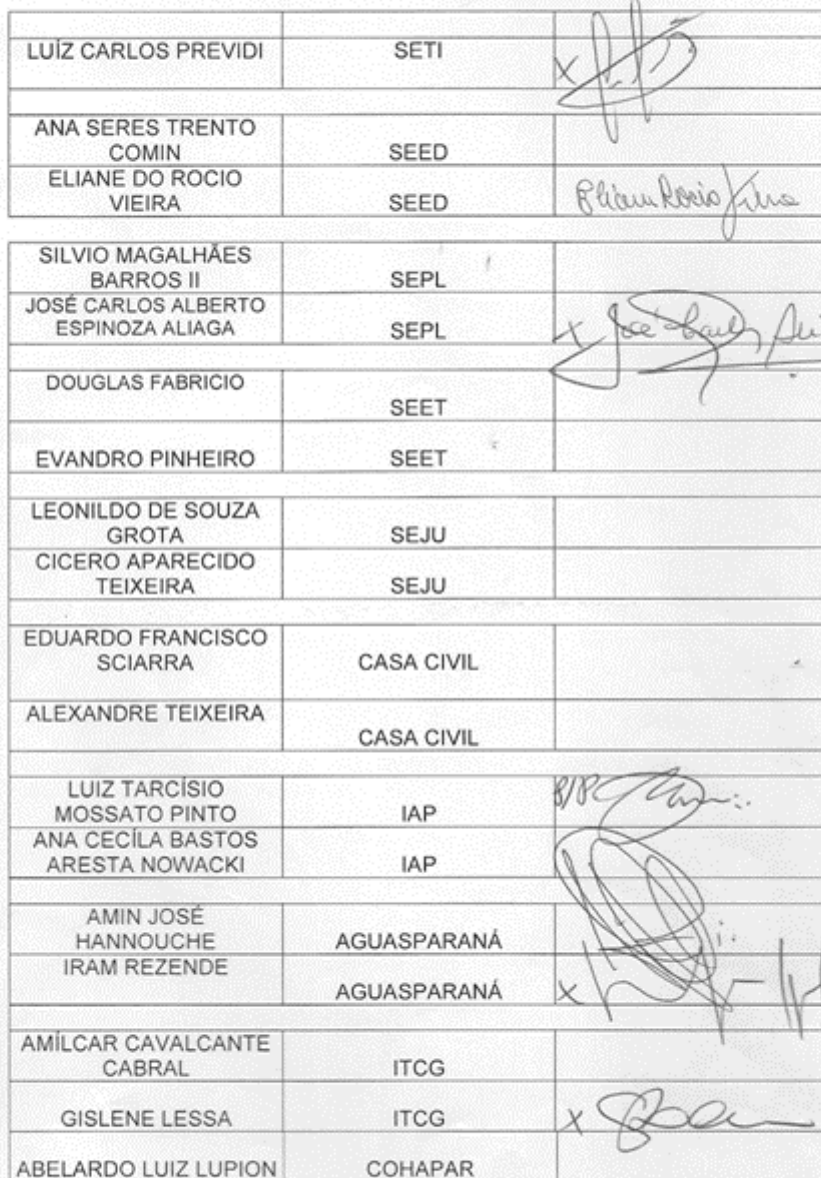 LUÍZ CARLOS PREVIDI SETI X
ANA SERES TRENTO
COMIN SEED
ELIANE DO ROCIO
VIEIRA SEED Eliane Rocio Vieira
SILVIO MAGALHÃES
BARROS II SEPL
JOSÉ CARLOS ALBERTO
ESPINOZA ALIAGA SEPL X José Carlos
DOUGLAS FABRICIO
SEET
EVANDRO PINHEIRO SEET
LEONILDO DE SOUZA
GROTA SEJU
CICERO APARECIDO
TEIXEIRA SEJU
EDUARDO FRANCISCO
SCIARRA CASA CIVIL
ALEXANDRE TEIXEIRA
CASA CIVIL
LUIZ TARCÍSIO
MOSSATO PINTO IAP
ANA CECÍLA BASTOS
ARESTA NOWACKI IAP
AMIN JOSÉ
HANNOUCHE AGUASPARANÁ
IRAM REZENDE
AGUASPARANÁ X
AMÍLCAR CAVALCANTE
CABRAL ITCG
GISLENE LESSA ITCG X
ABELARDO LUIZ LUPION COHAPAR